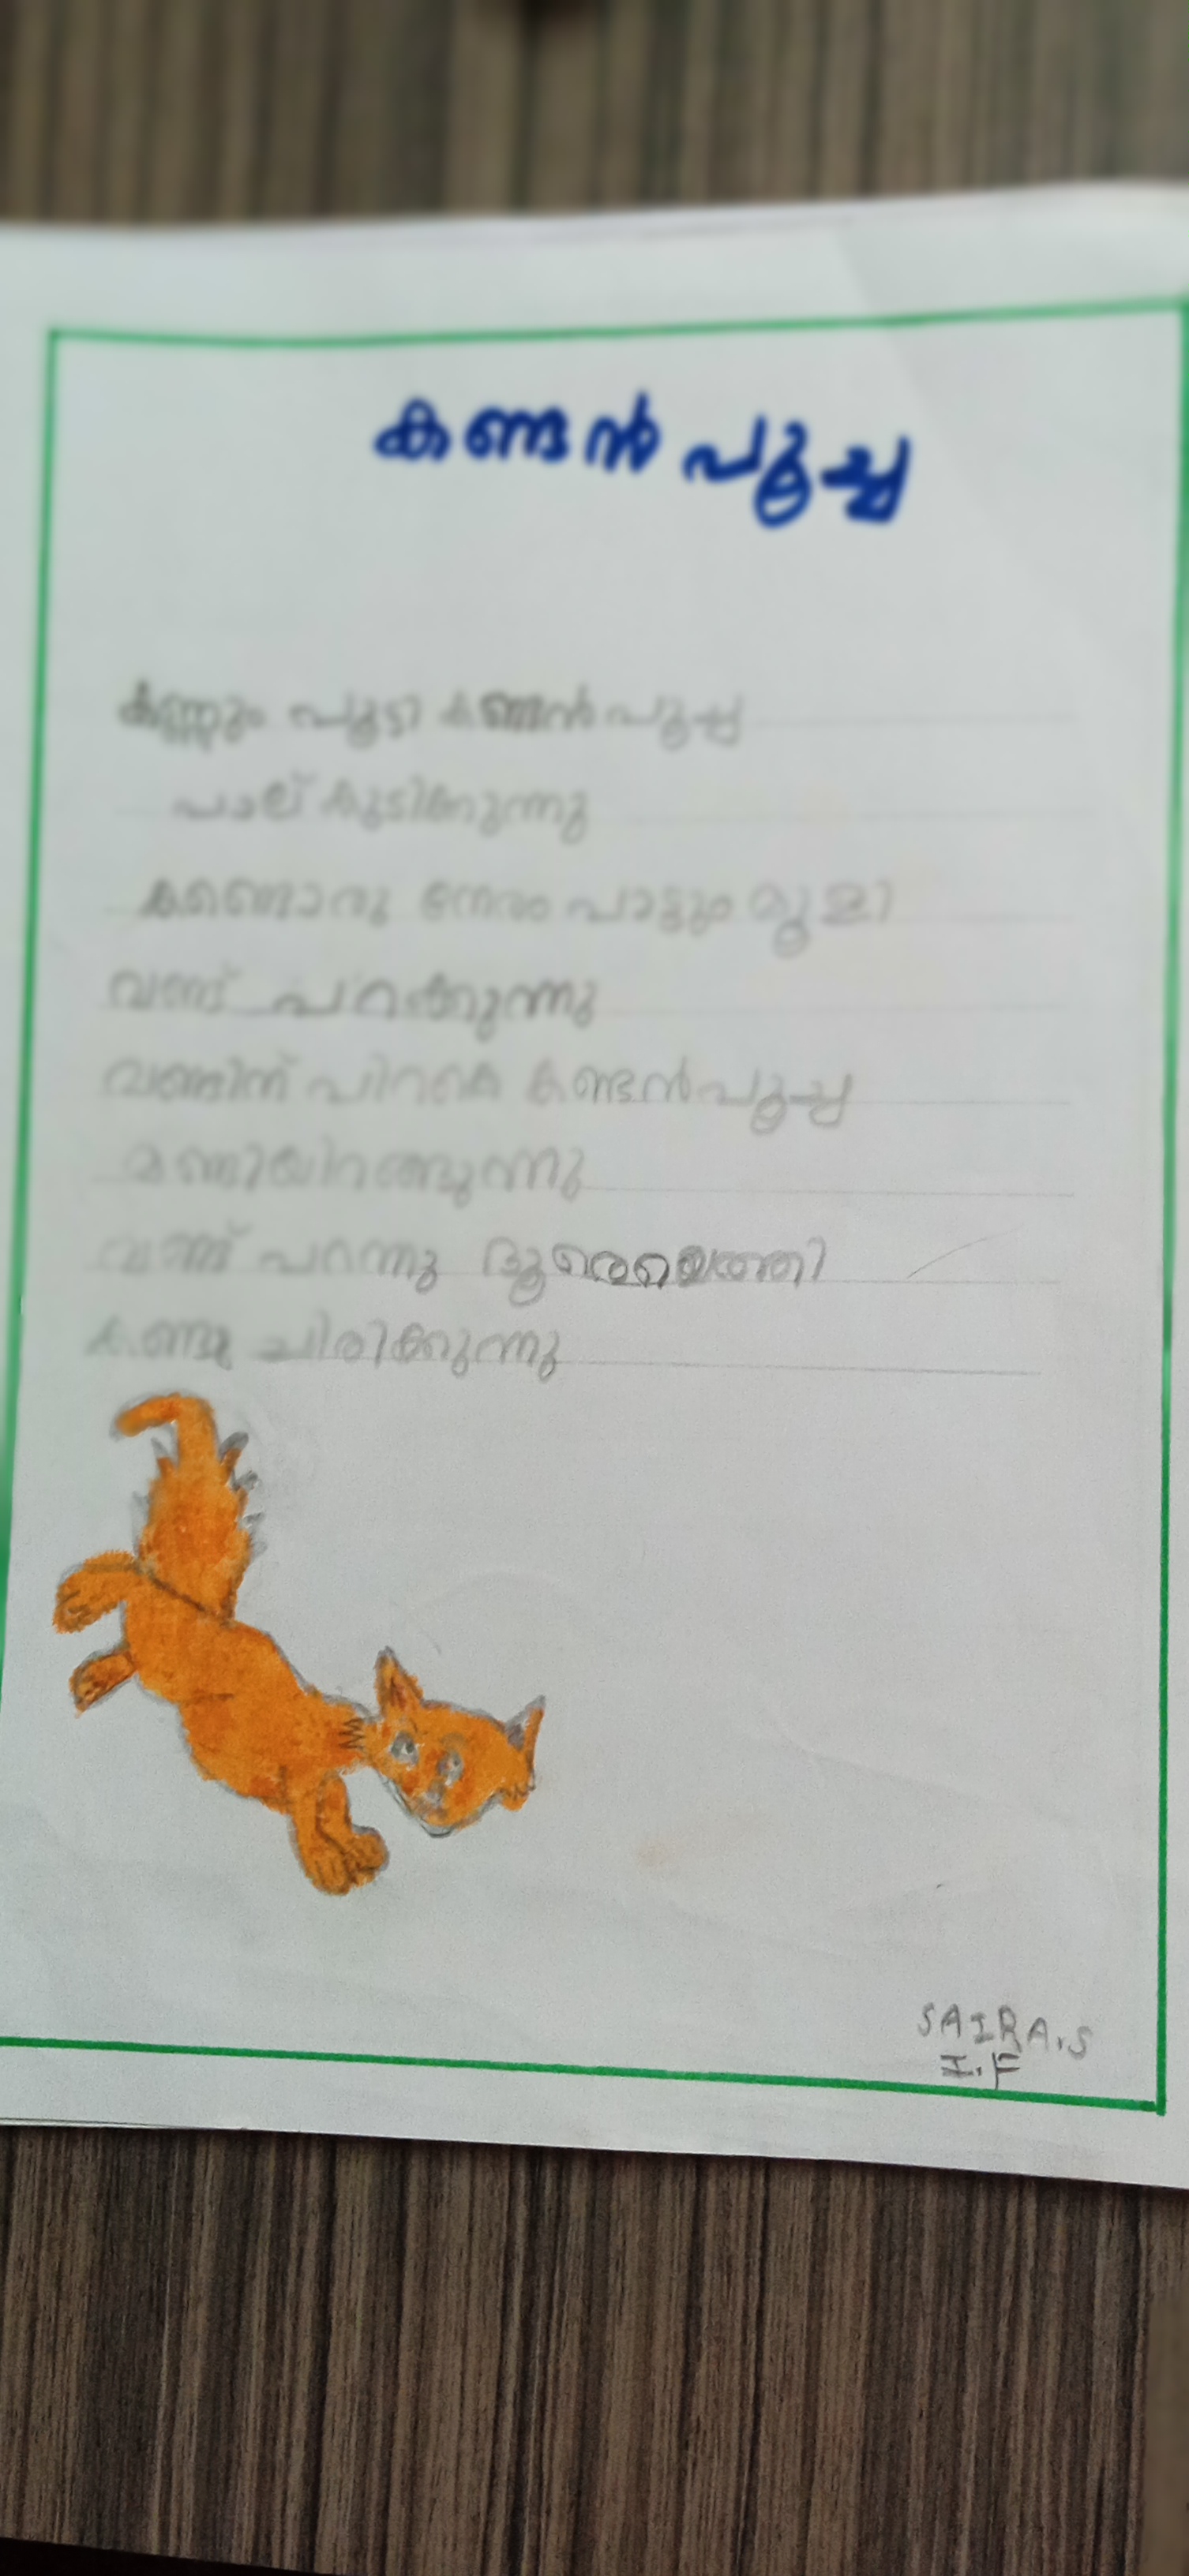 കണ്ടൻ പൂച്ച
കണ്ണും പൂട്ടി കണ്ടൻ പൂച്ച
പാല് കുടിക്കുന്നു
കണ്ടൊരു നേരം പാട്ടും മൂളി
വണ്ട് പറക്കുന്നു
വണ്ടിന് പിറകെ കണ്ടൻ പൂച്ച
മണ്ടിയിറങ്ങുന്നു
വണ്ട് പറന്നു ദൂരെയെത്തി
കണ്ടു ചിരിക്കുന്നു
SAIRA.S
I.F